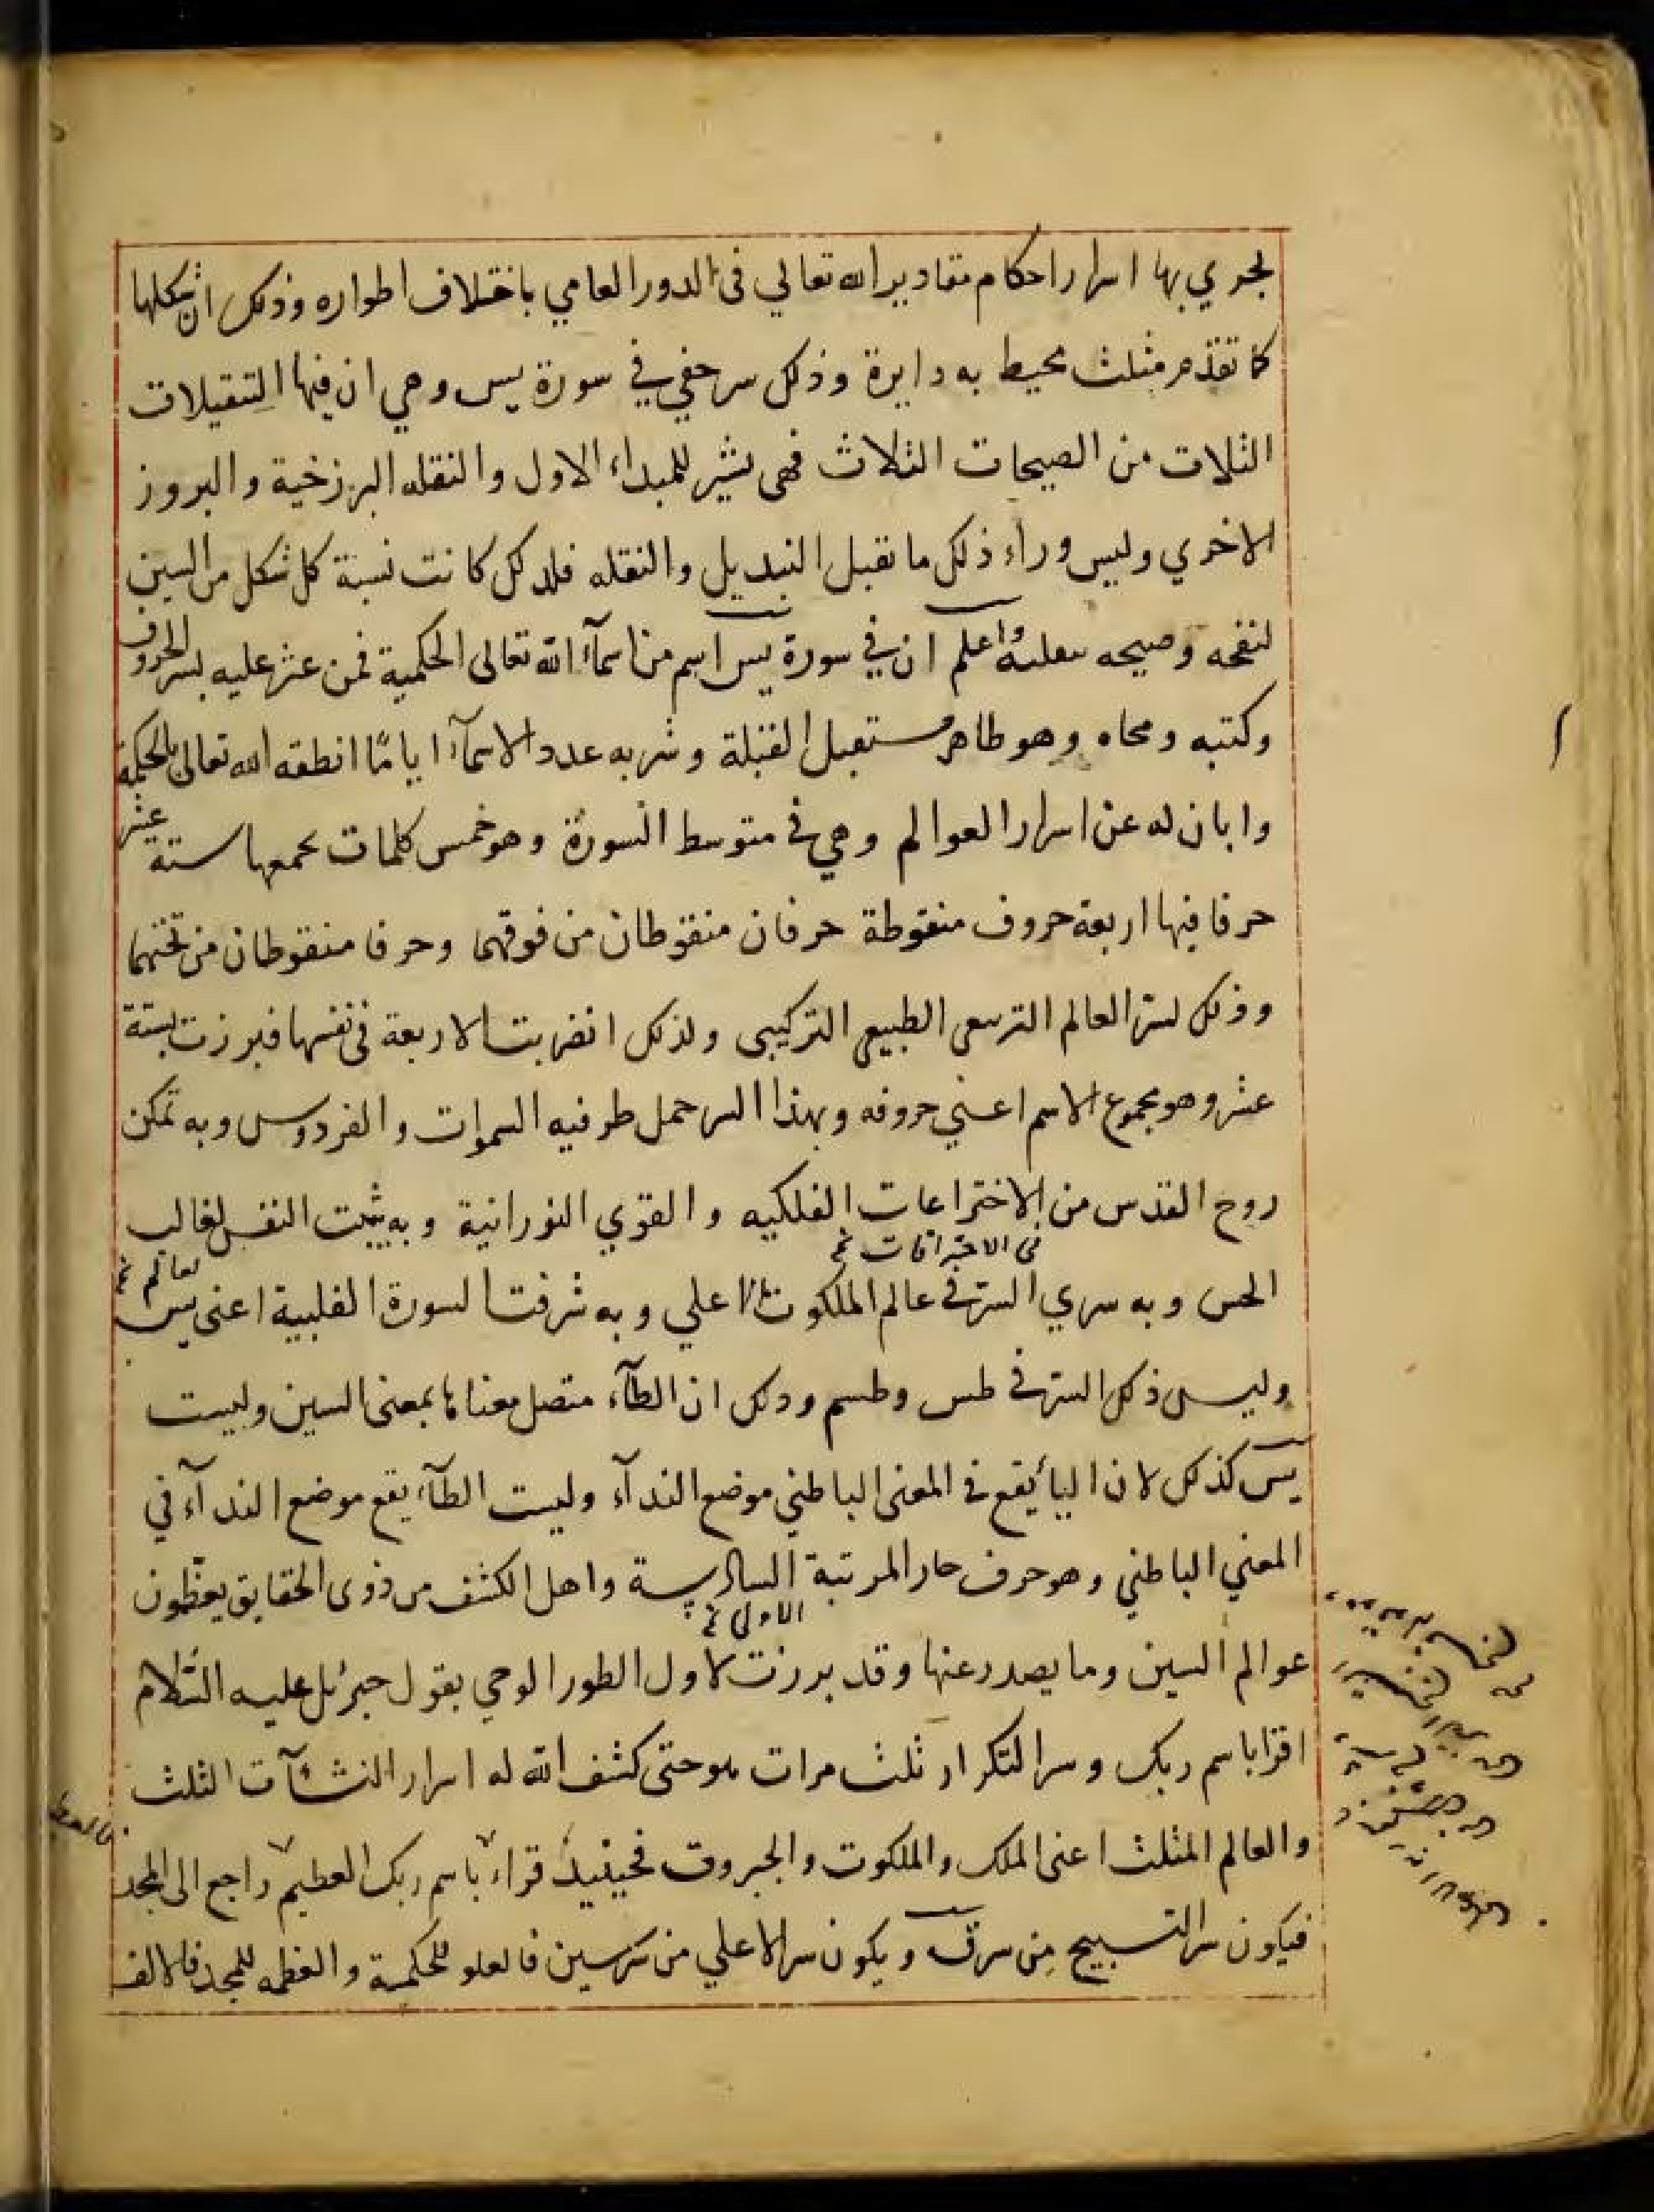 لجري بها اسرار احكام مقادير الله تعالي في الدور العامي باختلاف اطواره وذلك ان شكلها
كما تقدم مثلث محيط به دايرة وذلك سر خفي في سورة يس وهي ان فيها التنقيلات
الثلاث من الصيحات الثلاث فهى تشير للمبداء الاول والنقله البرزخية والبروز
الاخري وليس وراء ذلك ما يقبل التبديل والنقله فلذلك كانت نسبة كل شكل من السين
لنفخه وصيحه واعلم ان في سورة يس اسم من اسمآء الله تعالى الحكمية فمن عثر عليه بسر الحروف
وكتبه ومحاه وهو طاهر مستقبل القبلة وشربه عدد الاسمآء اياما انطقه الله تعالى بالحكمة
وابان له عن اسرار العوالم وهي في متوسط السورة وهو خمس كلمات بجمعها ستة عشر
حرفا فيها اربعة حروف منقوطة حرفان منقوطان من فوقهما وحرفا منقوطان من تحتهما
وذلك لسر العالم الطبيعي التركيبى ولذلك انضربت الاربعة في نفسها فبرزت بستة
عشر وهو مجموع الاسم اعني حروفه وبهذا السر حمل طرفيه السموات والفردوس وبه تمكن
روح القدس من الاختراعات الفلكيه والقوي النورانية وبه يثبت النفس لغالب
في الاختراقات نخ
لعالم نخ
الحس وبه سري السر في عالم الملكوت الاعلي وبه شرفت السورة القلبية اعنى يس
وليس ذلك السر في طس وطسم وذلك ان الطآء متصل معناها بمعنى السين وليست
يس كذلك لان اليا يقع في المعنى الباطني موضع الندآء وليست الطآء يقع موضع الندآء في
المعني الباطني وهو حرف حار المرتبة السادسة واهل الكشف من ذوى الحقايق يعظمون
الاولى نخ
عوالم السين وما يصدر عنها وقد برزت لاول الطور الوحي بقول جبرئل عليه السلام
اقرا باسم ربك وسر التكرار ثلث مرات هو حتى كشف الله له اسرار النشآت الثلث
والعالم المثلث اعنى الملك والملكوت والجبروت فحينيذ قراء باسم ربك العظيم راجع الى المجد
فيكون سر التسبيح من سر ق ويكون سر الاعلي من سر سين فالعلو للحكمية والعظمه للمجد فالالف